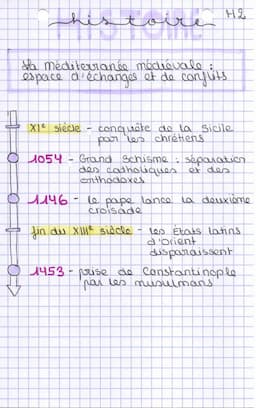 HISTOIRE
histoire
H2
La méditerranée médiévale :
espace d'échanges et de conflits
XIe siècle - conquête de la Sicile
par les chrétiens
1054 - Grand Schisme : séparation
des catholiques et des
orthodoxes
1146 - le pape lance la deuxième
croisade
fin du XIIIe siècle - les États latins
d'orient
disparaissent
1453 - prise de Constantinople
par les musulmans